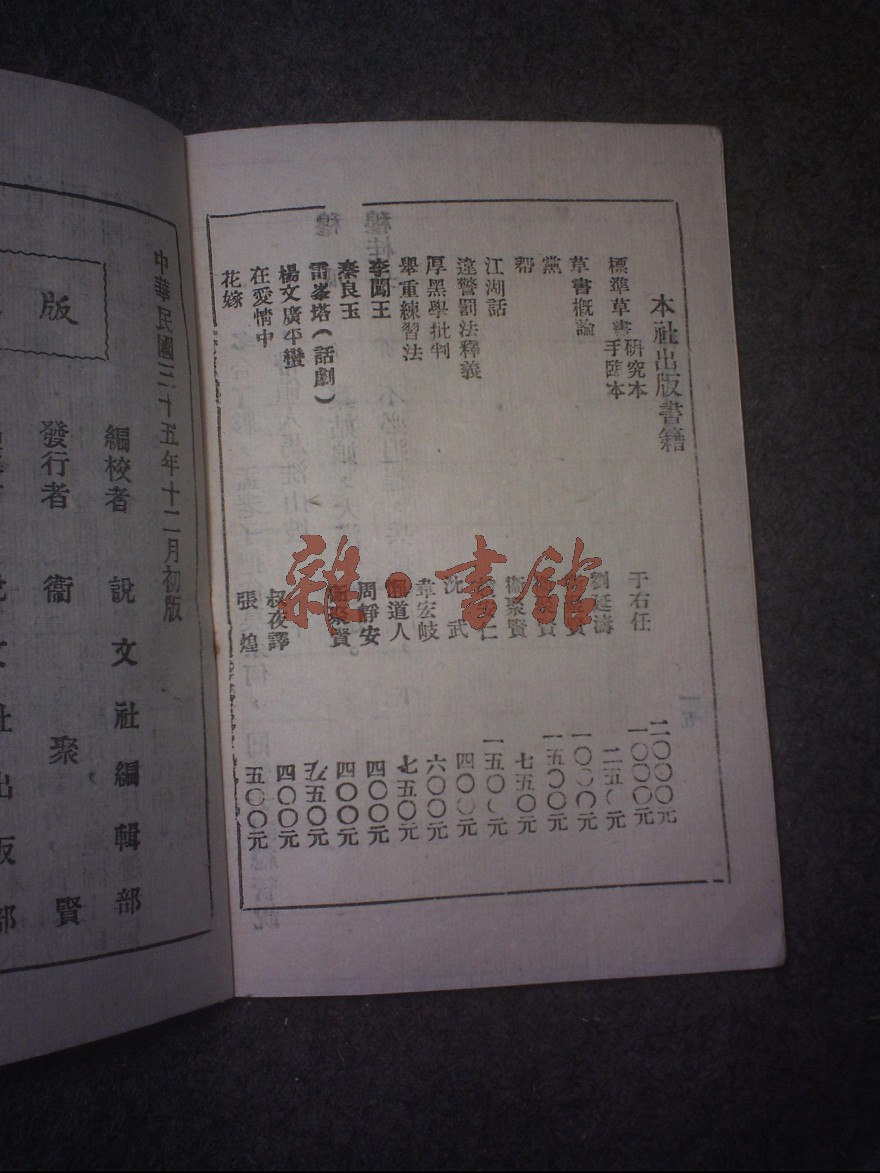 本社出版書籍
標準草書 研究本 于右任 二〇〇〇元
手匯本 一〇〇〇元
草書概論 劉延濤 二五〇元
黨 賢 一〇〇〇元
幫 賢 一五〇〇元
江湖話 衛聚賢 七五〇元
違警罰法釋義 仁 一五〇〇元
厚黑學批判 沈武 四〇〇元
舉重練習法 韋宏岐 六〇〇元
李闖王 道人 七五〇元
秦良玉 周靜安 四〇〇元
雷峯塔(話劇) 衛聚賢 四〇〇元
楊文廣平蠻 五〇元
在愛情中 叔夜譯 四〇〇元
花嫁 張煌 五〇〇元
中華民國三十五年十二月初版
編校者 說文社編輯部
發行者 衛聚賢
文社出版部
版
雜·書館